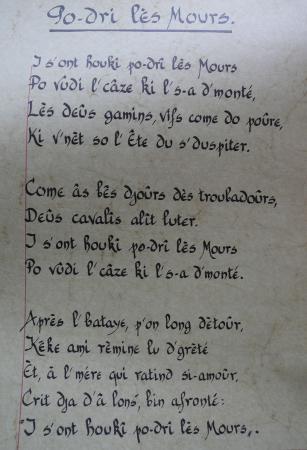 Po-drî lès Mours.
I s'ont houkî po-drî lès Mours
Po vûdî l'câze ki l's-a d'monté,
Lès deûs gamins, vifs come do poûre,
Ki v'nèt so l'Ête du s'duspiter.
Come âs bês djoûrs dès troubadoûrs,
Deûs cavalîs alît luter.
I s'ont houkî po-drî lès Mours
Po vûdî l'câze ki l's-a d'monté.
Après l'bataye, p'on long dètoûr,
Kéke ami rèmine lu d'grèté
Èt, à l'mére qui ratind si-amoûr,
Crit dja d'â lons', bin afronté:
"I s'ont houkî po-drî lès Mours,.